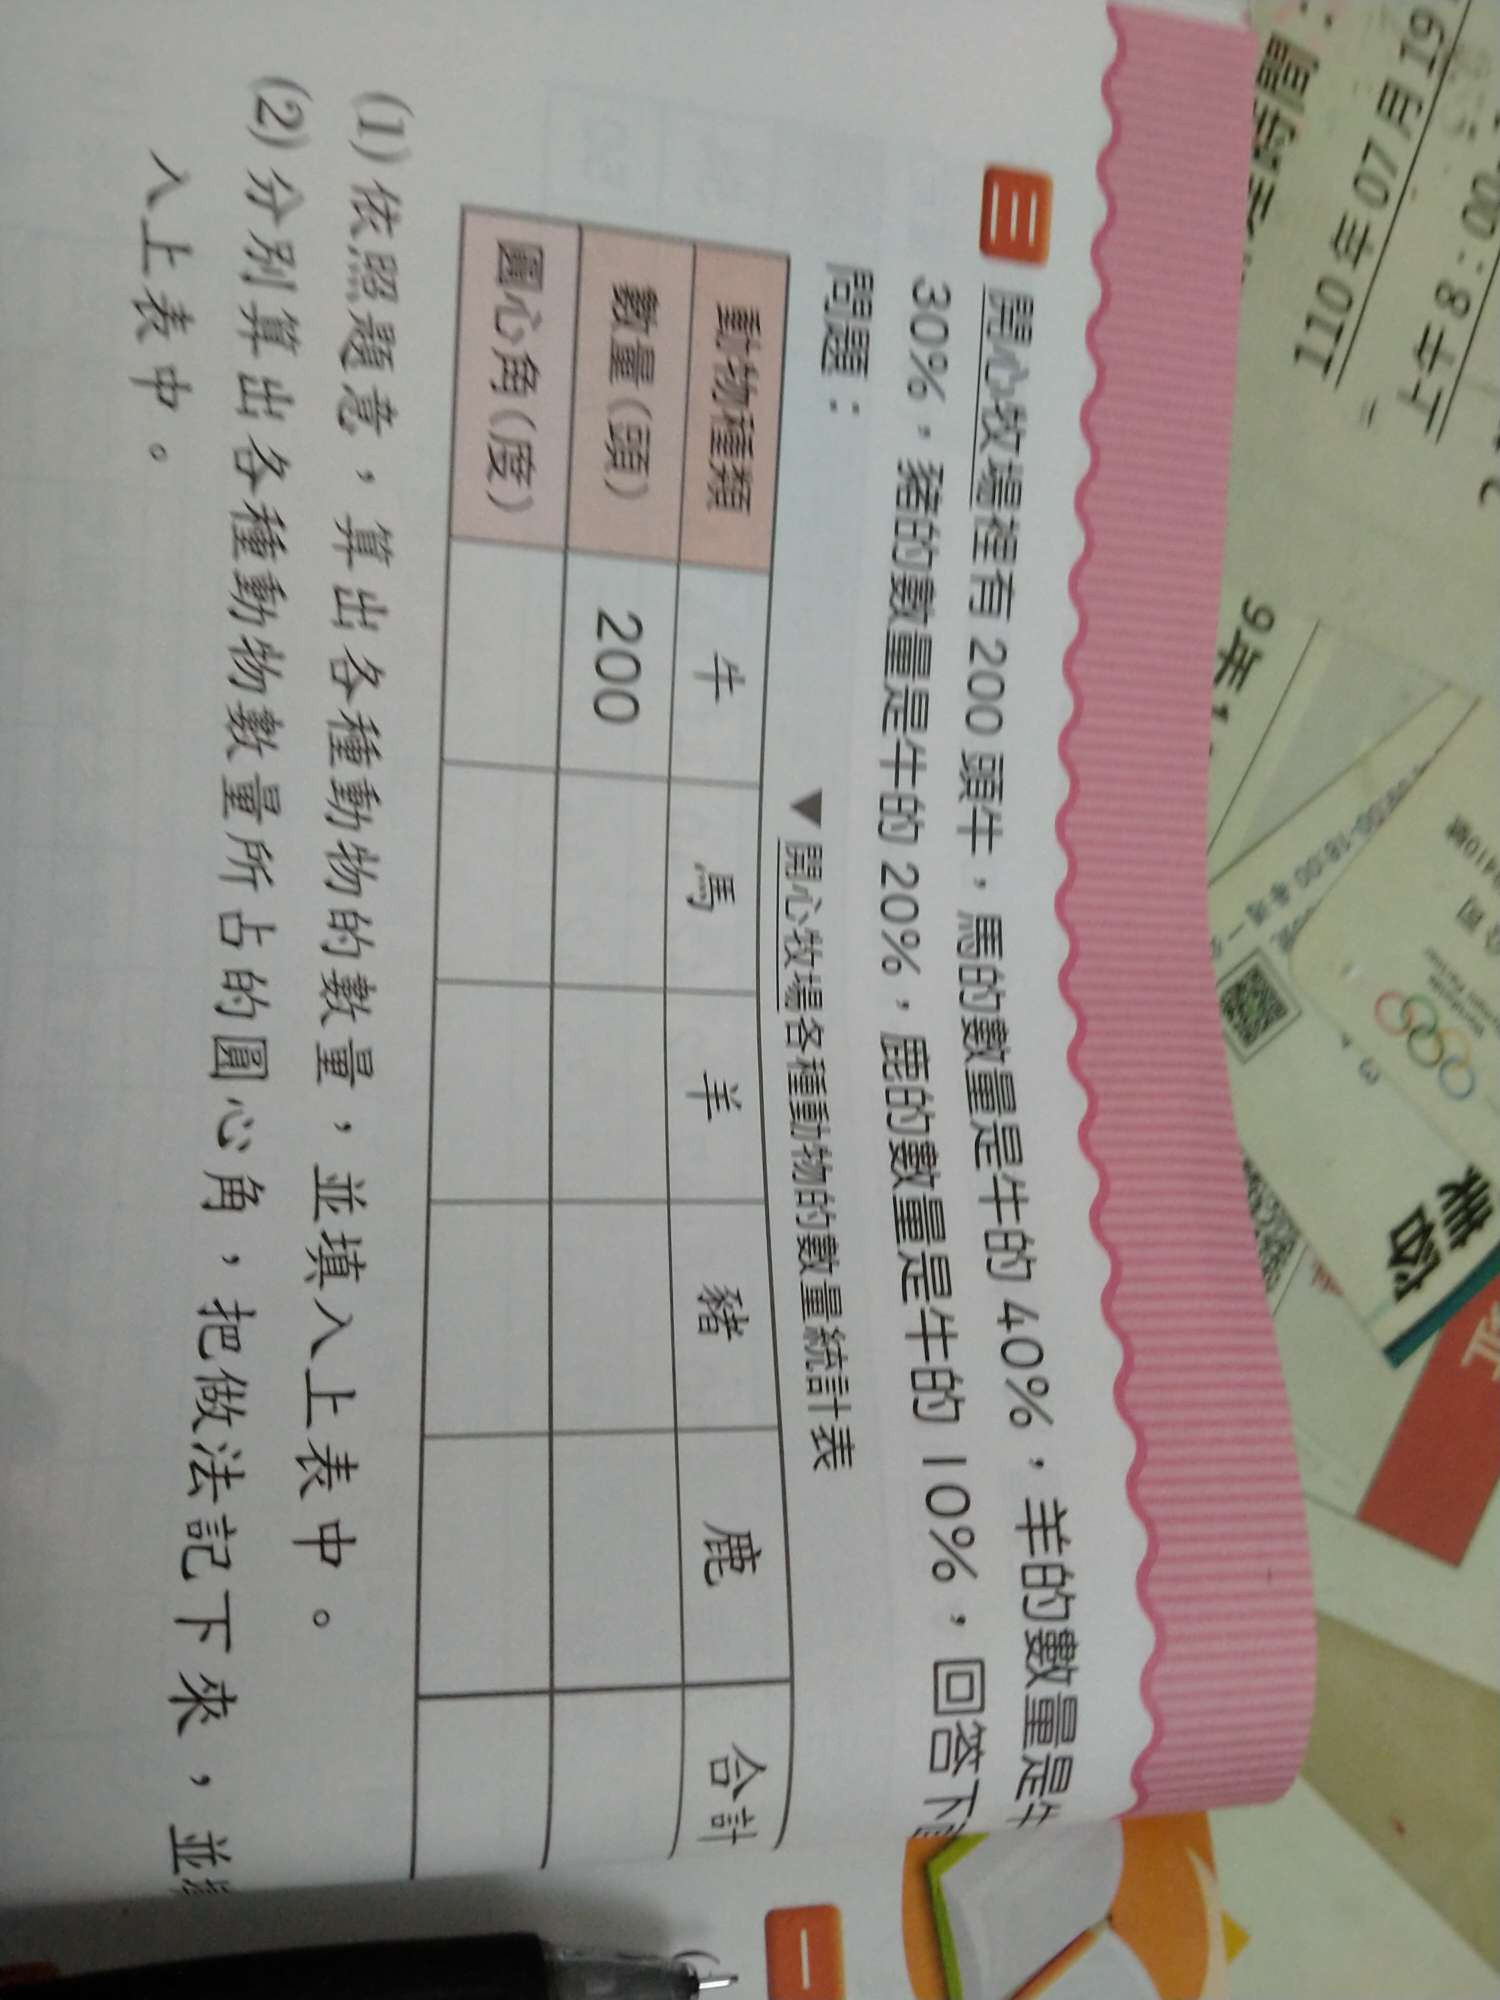 三 開心牧場裡有 200 頭牛，馬的數量是牛的 40%，羊的數量是牛
30%，豬的數量是牛的 20%，鹿的數量是牛的 10%，回答下
問題：
▼開心牧場各種動物的數量統計表
動物種類 牛 馬 羊 豬 鹿 合計
數量(頭) 200
圓心角(度)
(1) 依照題意，算出各種動物的數量，並填入上表中。
(2) 分別算出各種動物數量所占的圓心角，把做法記下來，並
入上表中。
一
110 年 07 月 19
上午 8：00
9 年 1